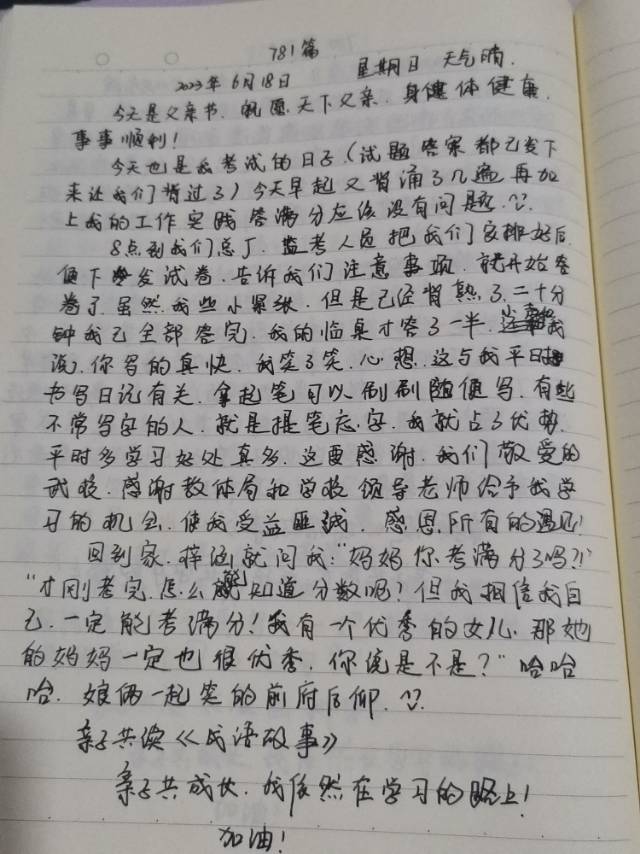 781篇
2023年6月18日 星期日 天气晴.
今天是父亲节.祝愿.天下父亲.身健体健康.
事事顺利!
今天也是我考试的日子(试题答案都已发下
来让我们背过了)今天早起又背诵了几遍再加
上我的工作实践答满分应该没有问题.
8点到我们总厂.监考人员把我们安排好后
便下发试卷.告诉我们注意事项.就开始答
卷了.虽然我些小紧张.但是已经背熟了.二十分
钟我已全部答完.我的临桌才答了一半.我
说.你写的真快.我笑了笑.心想.这与我平时
书写日记有关.拿起笔可以刷刷随便写.有些
不常写字的人.就是提笔忘字.我就占了优势.
平时多学习好处真多.这要感谢.我们敬爱的
武校.感谢教体局和学校领导老师给予我学
习的机会.使我受益匪浅.感恩.所有的遇见!
回到家.梓涵就问我:“妈妈你考满分了吗?!”
“才刚考完.怎么能知道分数呢?但我相信我自
己.一定能考满分!我有一个优秀的女儿.那她
的妈妈一定也很优秀.你说是不是?”哈哈
哈.娘俩一起笑的前府后仰.
亲子共读《成语故事》
亲子共成长.我依然在学习的路上!
加油!